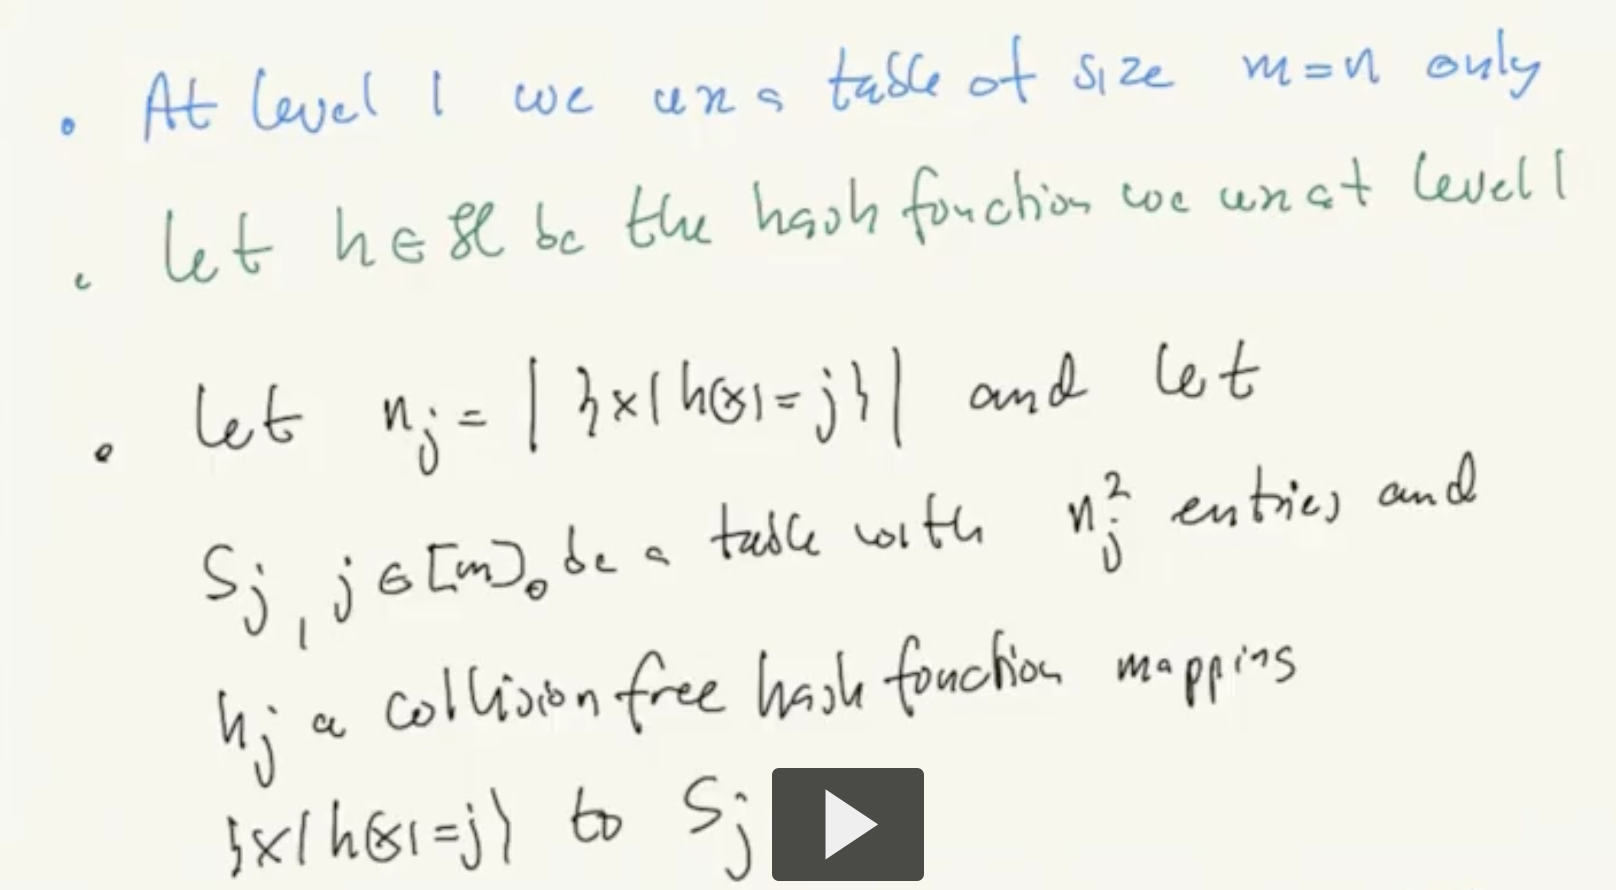 • At level 1 we use a table of size m=n only
• Let h∈ℋ be the hash function we use at level 1
• Let nⱼ = |{x|h(x)=j}| and let
Sⱼ, j∈[m]₀ be a table with nⱼ² entries and
hⱼ a collision free hash function mapping
{x|h(x)=j} to Sⱼ